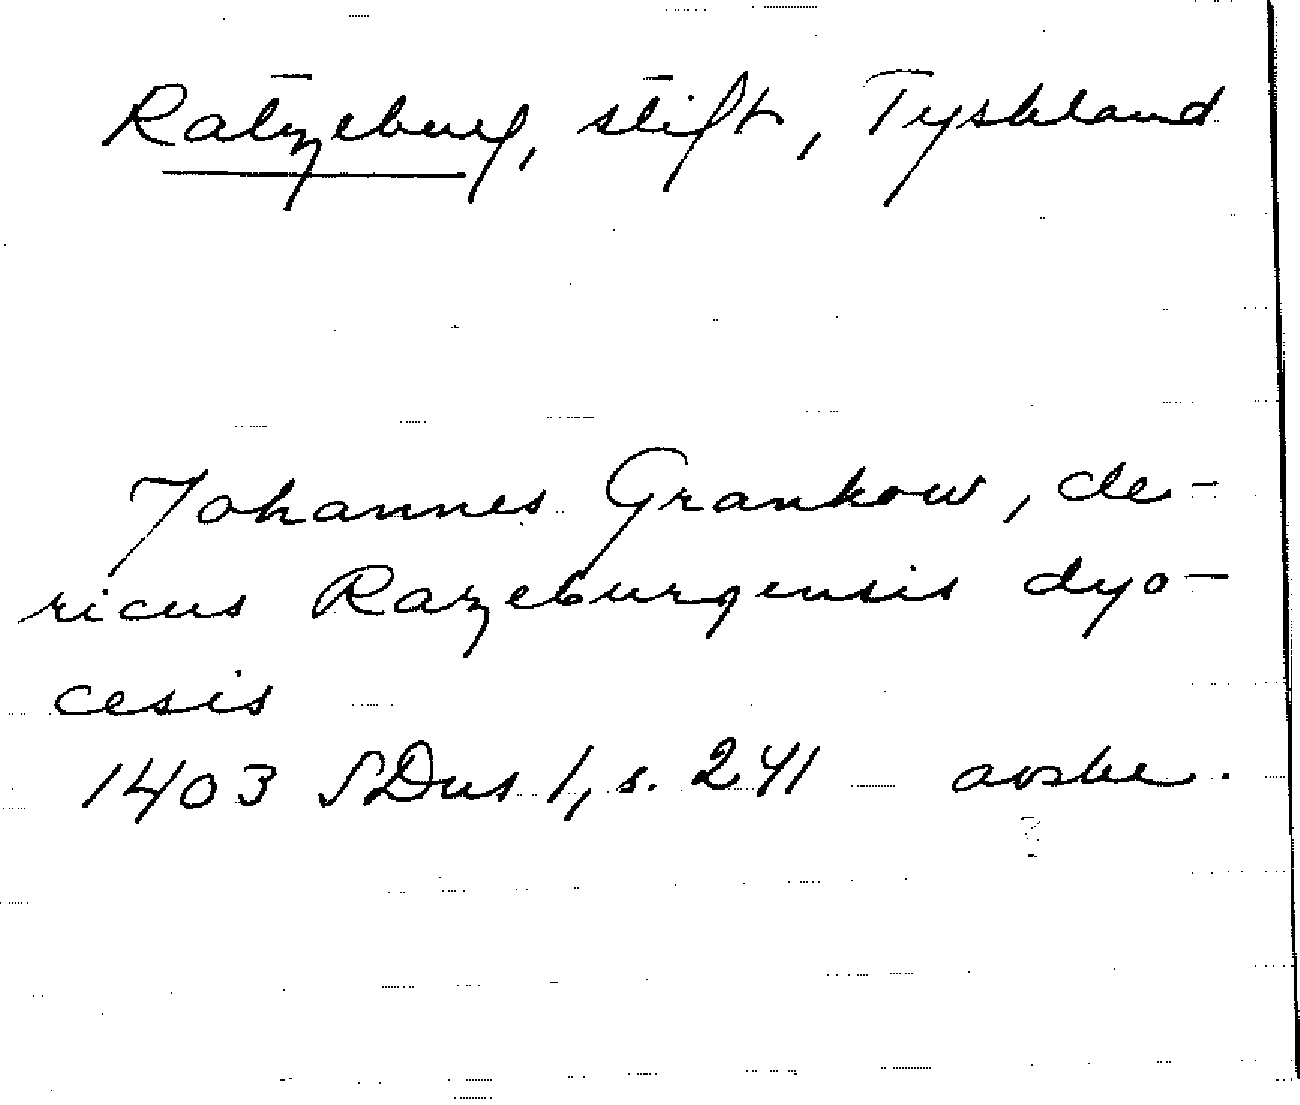 Ratzeburg, stift, Tyskland
Johannes Grankow, cle-
ricus Razeburgensis dyo-
cesis
1403 SDns 1, s. 241 avskr.